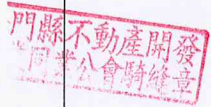 門縣不動產開發
同業公會騎縫章